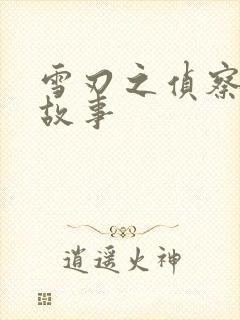 雪刃之偵察
故事
逍遥火神